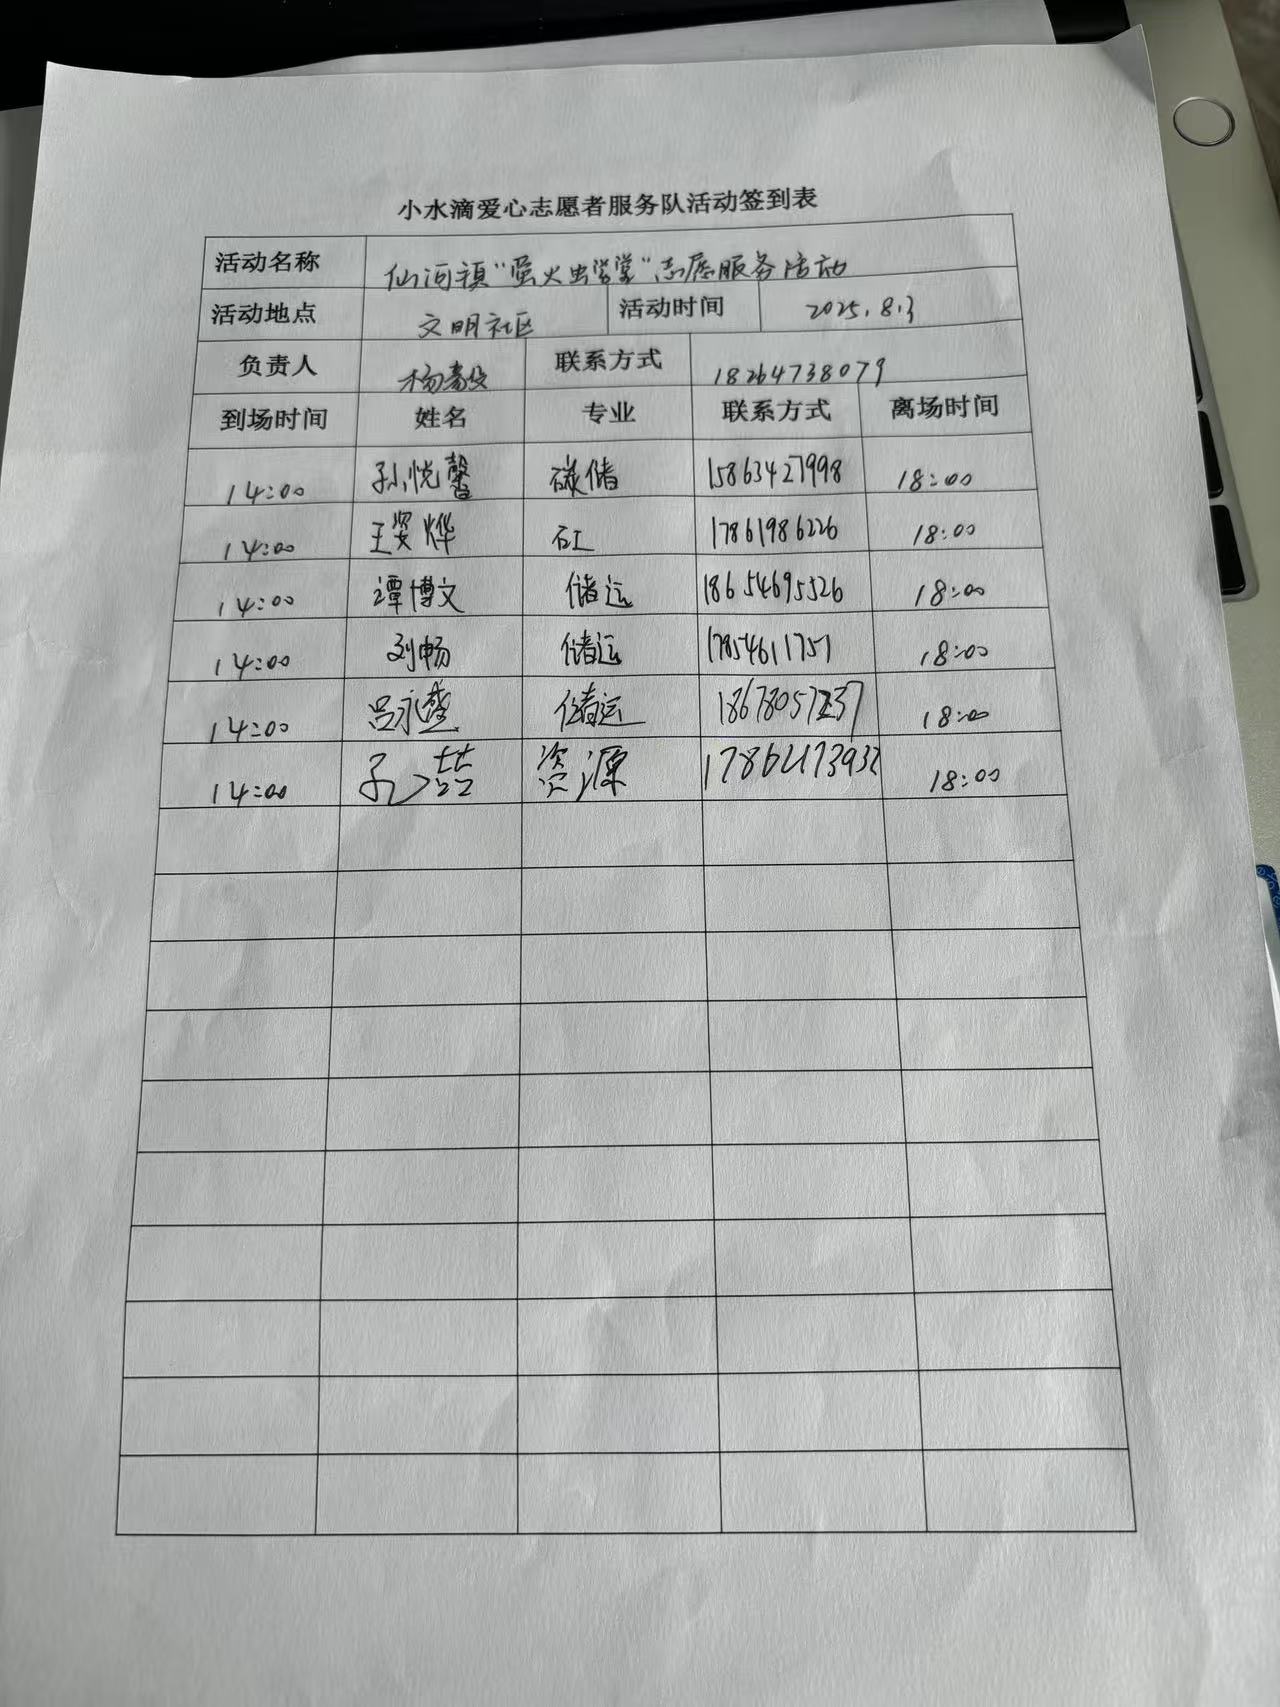 小水滴爱心志愿者服务队活动签到表
活动名称 仙河镇“萤火虫学堂”志愿服务活动
活动地点 文明社区 活动时间 2025.8.3
负责人 杨 联系方式 18264738079
到场时间 姓名 专业 联系方式 离场时间
14:00 孙悦馨 碳储 15863427998 18:00
14:00 王姿烨 石工 17861986226 18:00
14:00 谭博文 储运 18654695526 18:00
14:00 刘畅 储运 17854611751 18:00
14:00 吕永盛 储运 18:00
14:00 孔喆 资源 18:00